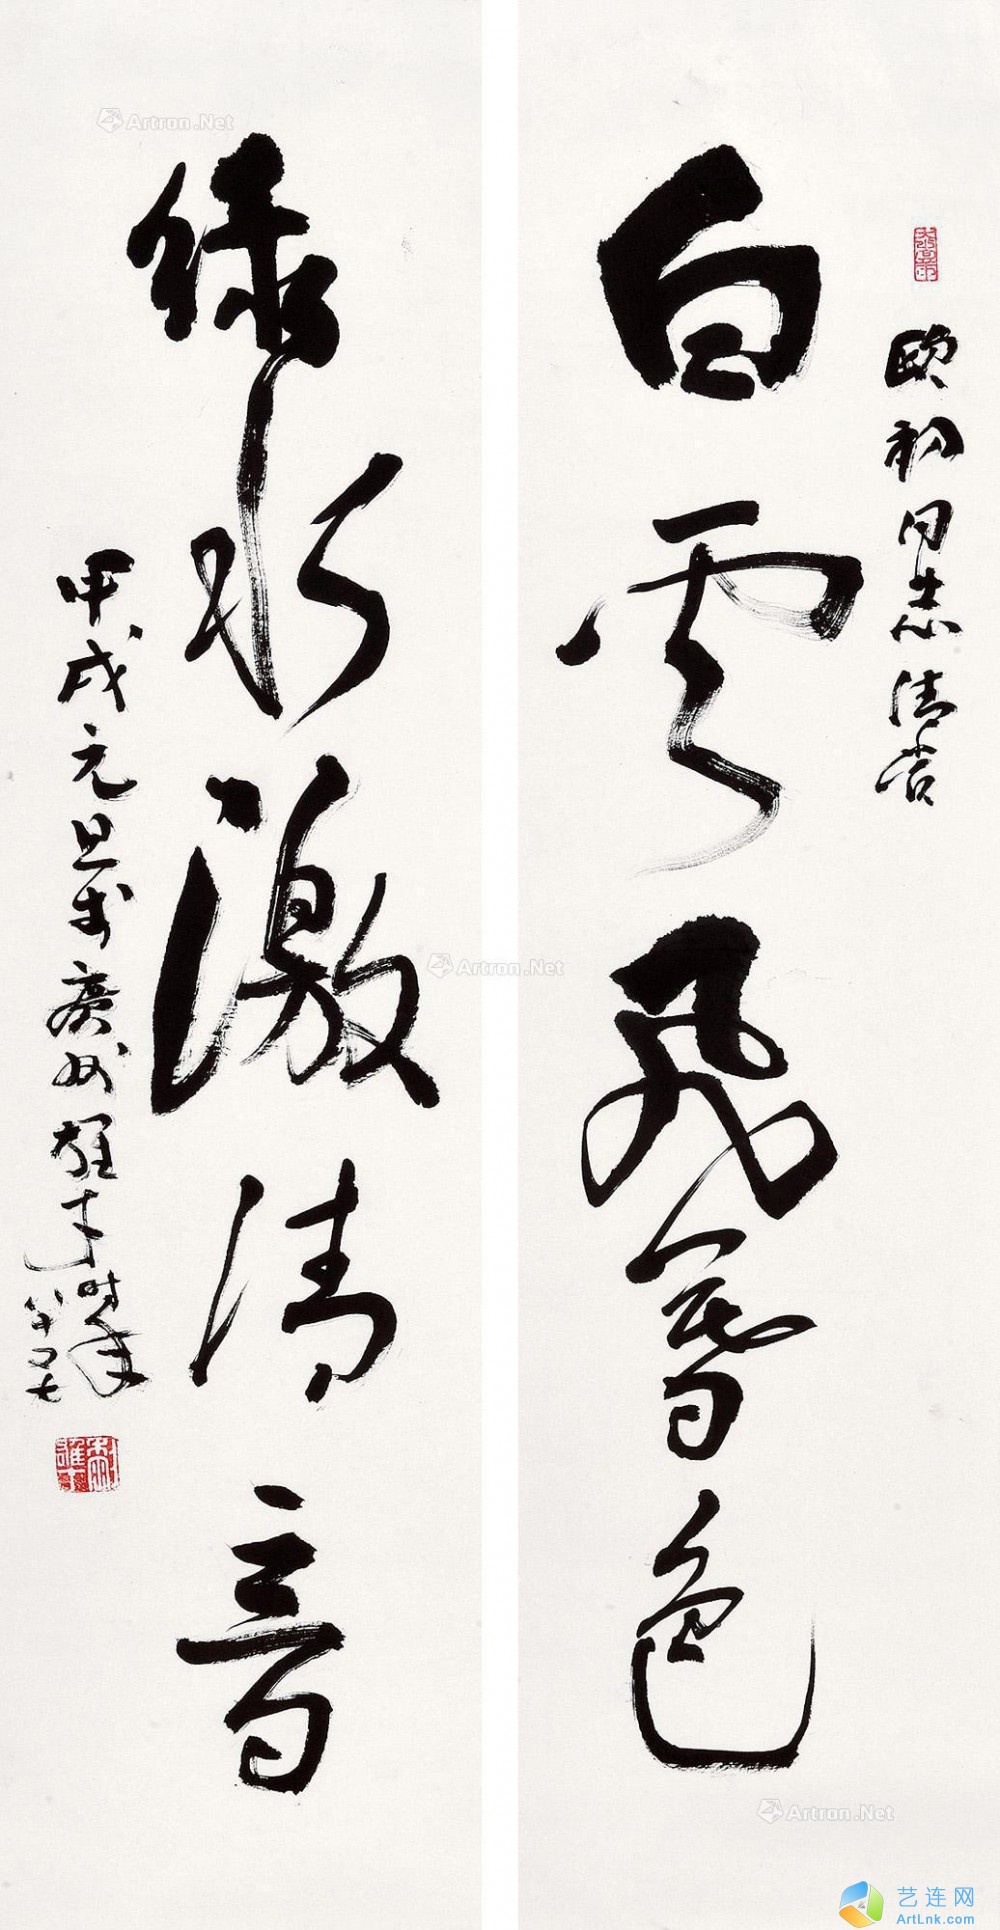 欧初同志清赏
白云飞暮色
绿水激清音
甲戌元旦于广州雄才时年
八十又五
黎雄才
Artron.Net
Artron.Net
Artron.Net
艺连网
ArtLnk.com